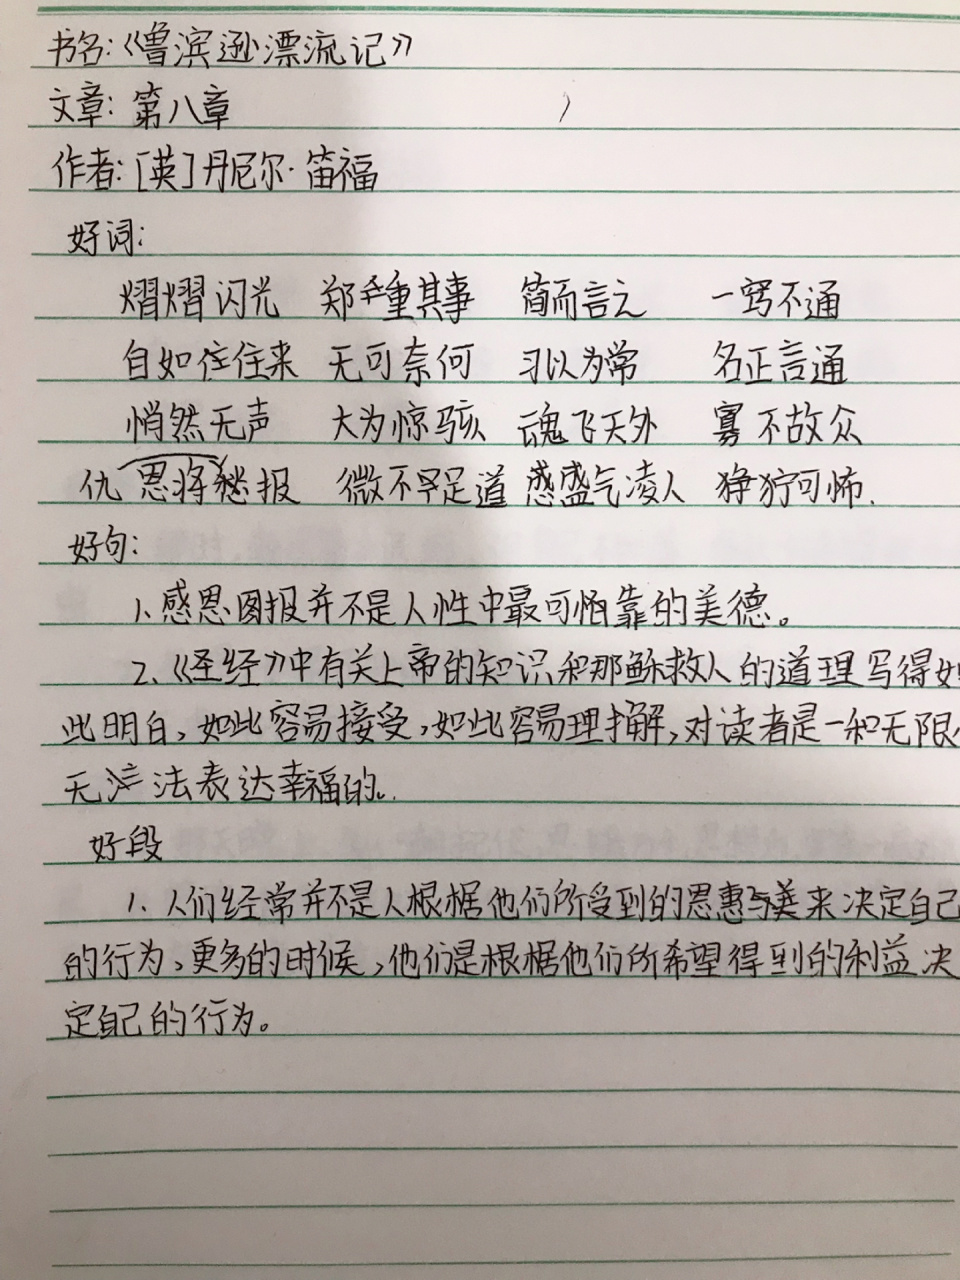 书名:《鲁滨逊漂流记》
文章: 第八章
作者:[英]丹尼尔·笛福
好词:
熠熠闪光 郑重其事 简而言之 一窍不通
自如往来 无可奈何 习以为常 名正言通
悄然无声 大为惊骇 魂飞天外 寡不故众
仇恩将报 微不足道 盛气凌人 狰狞可怖.
好句:
1、感恩图报并不是人性中最可靠的美德。
2、《圣经》中有关上帝的知识和耶稣救人的道理写得如
此明白,如此容易接受,如此容易理解,对读者是一种无限
无法表达幸福的。
好段
1、人们经常并不是人根据他们所受到的恩惠来决定自己
的行为,更多的时候,他们是根据他们所希望得到的利益决
定自己的行为。